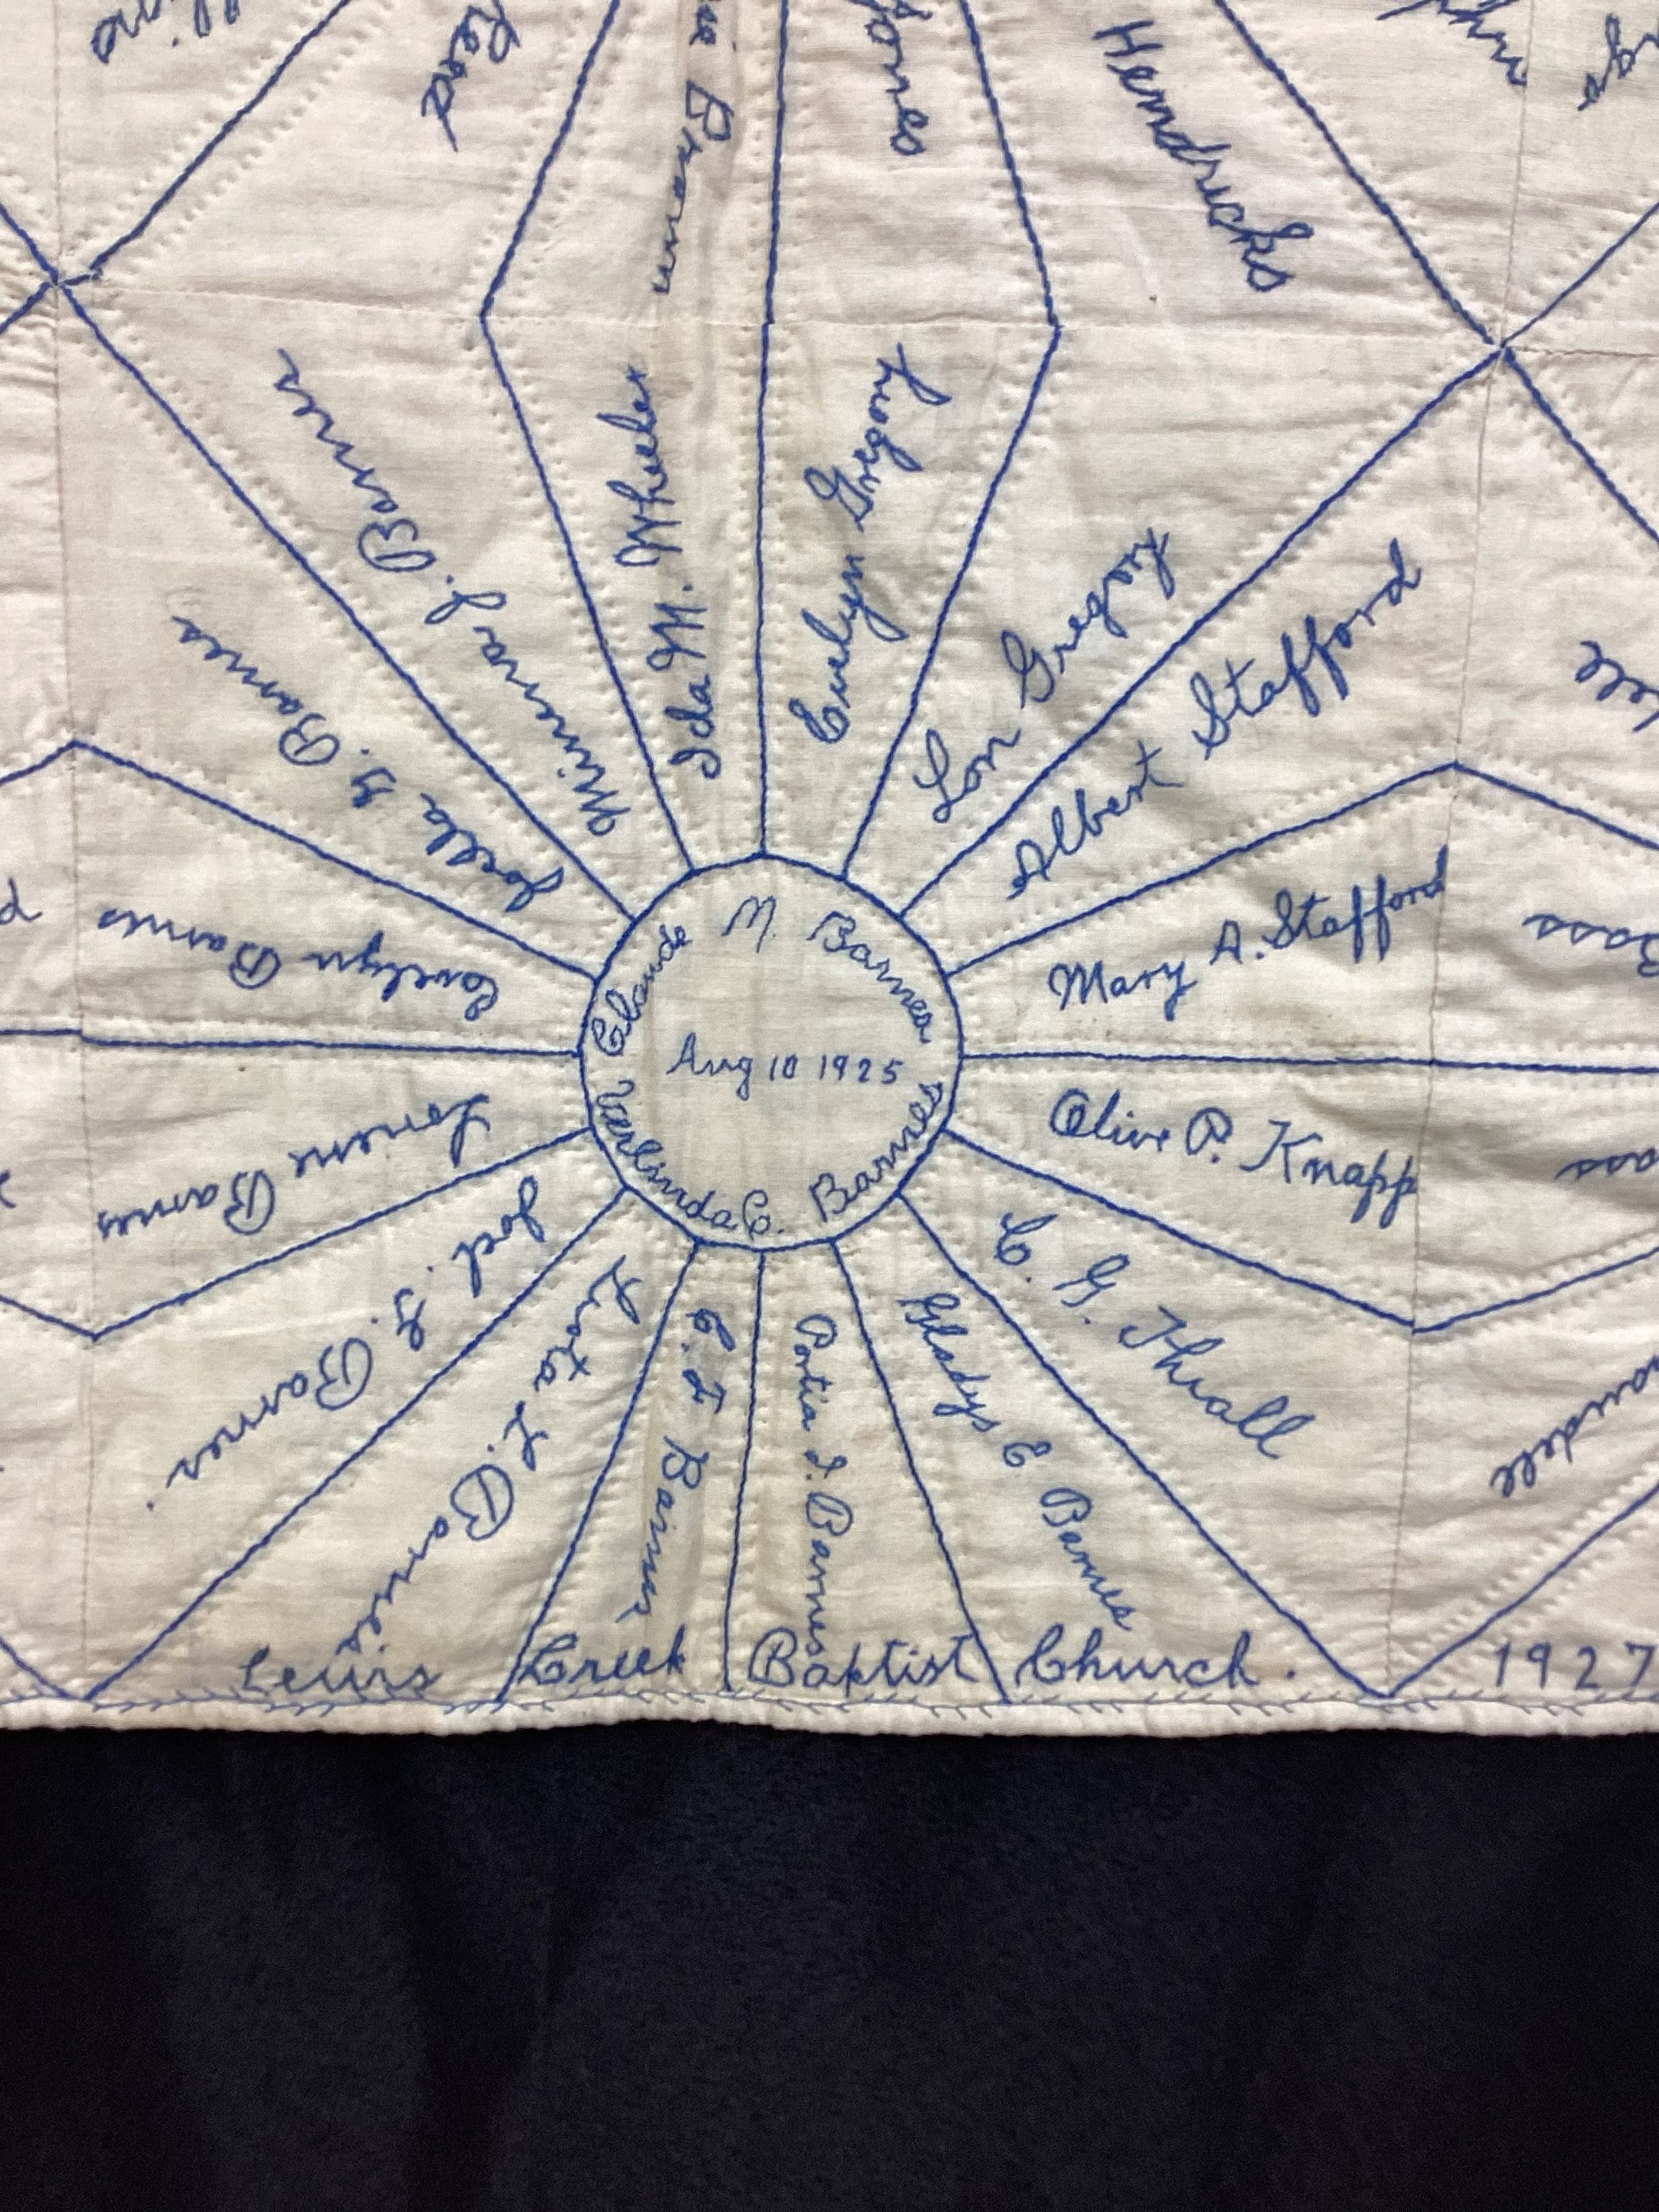 Read
Brown
Hendricks
Ida M. Wheeler
Evelyn Gregory
Lon Gregory
Albert Stafford
Mary A. Stafford
Olive P. Knapp
C. G. Thrall
Gladys E Barnes
Portia I. Barnes
C. F Barnes
Lota L. Barnes
Joel. G. Barnes
Loriene Barnes
Evelyn Barnes
Joella G. Barnes
Minerva J. Barnes
Claude M. Barnes
Aug 10 1925
Verlinda C. Barnes
Bass
Lewis Creek Baptist Church. 1927